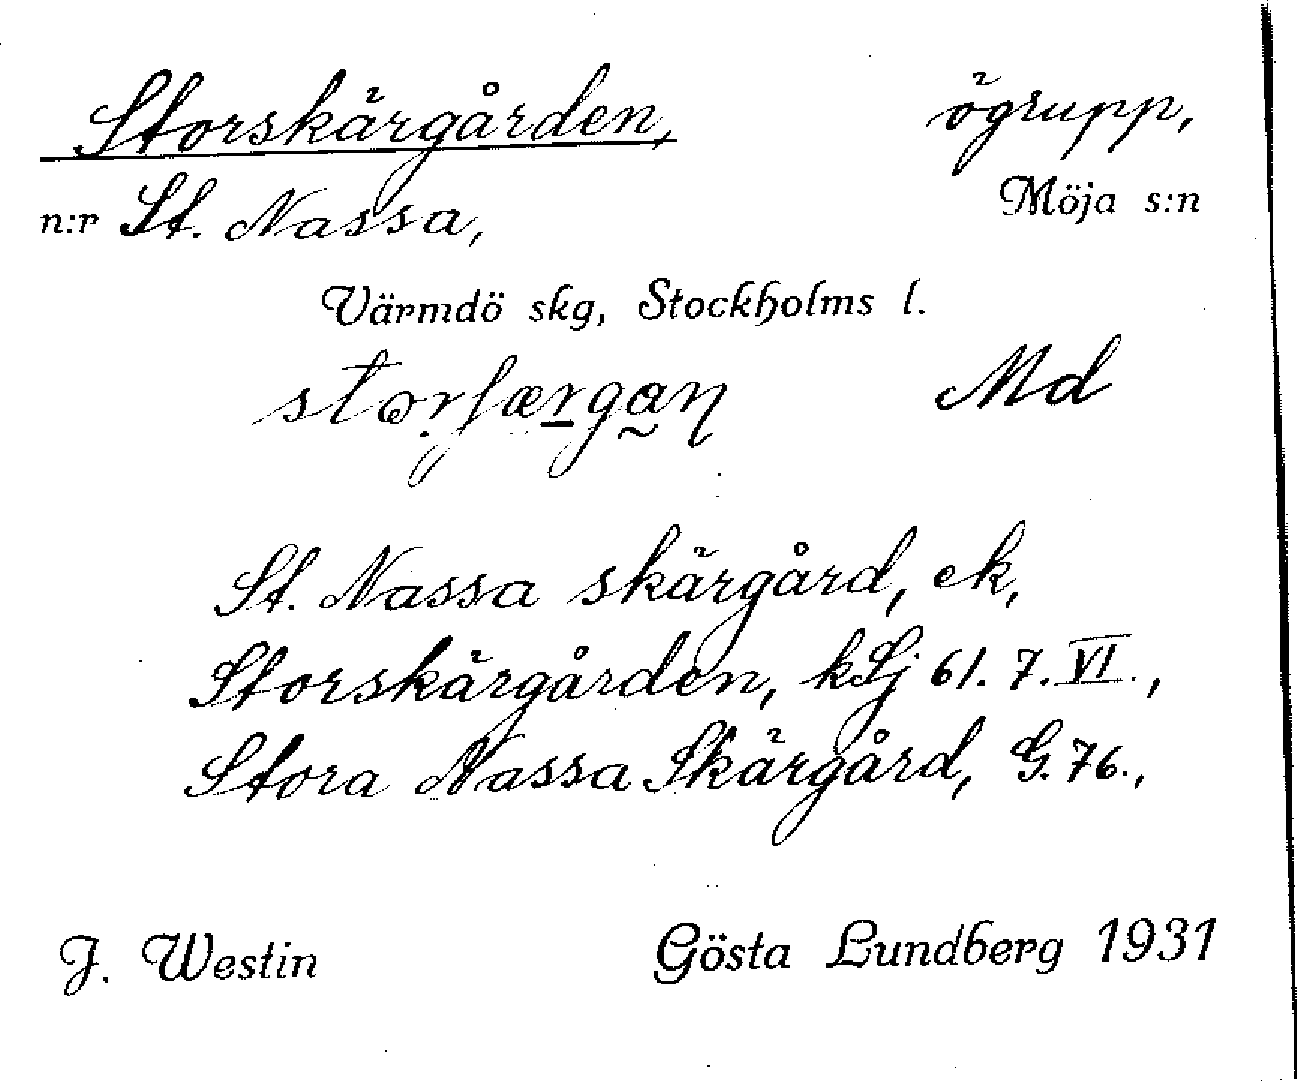 Storskärgården, ögrupp,
n:r St. Nassa, Möja s:n
Värmdö skg, Stockholms l.
Md
St. Nassa skärgård, ek,
Storskärgården, kSj 61. 7. VI.,
Stora Nassa Skärgård, G. 76.,
J. Westin Gösta Lundberg 1931